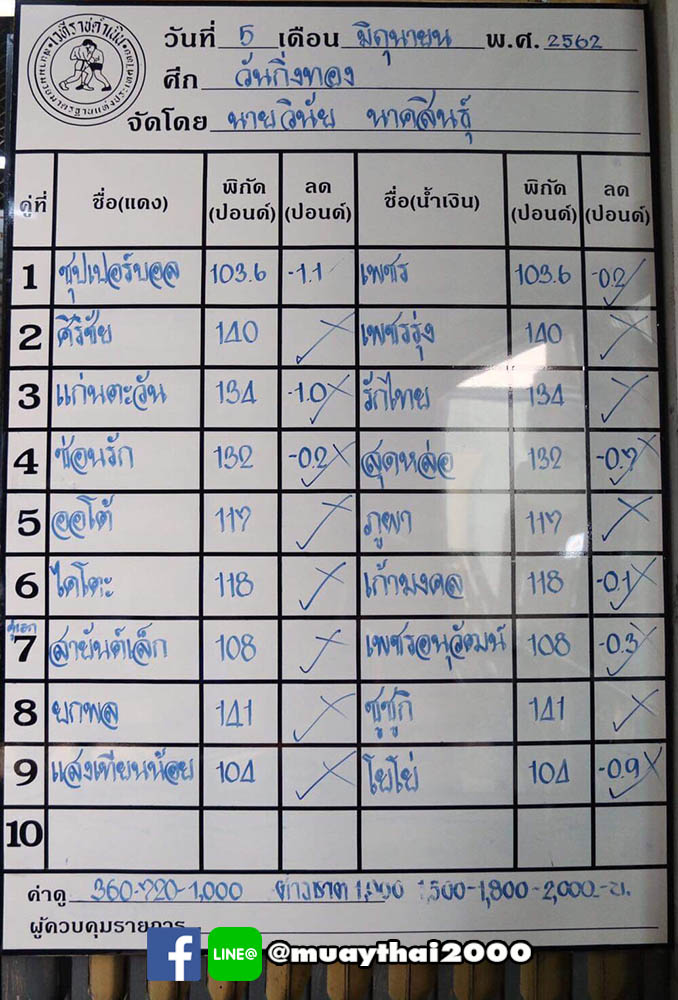 เวทีราชดำเนิน
วันที่ 5 เดือน มิถุนายน พ.ศ. 2562
ศึก วันกิ่งทอง
จัดโดย นายวินัย นาคสินธุ์
คู่ที่ ชื่อ(แดง) พิกัด(ปอนด์) ลด(ปอนด์) ชื่อ(น้ำเงิน) พิกัด(ปอนด์) ลด(ปอนด์)
1 ซุปเปอร์บอล 103.6 -1.1 เพชร 103.6 -0.2
2 ศิริชัย 140 เพชรรุ่ง 140
3 แก่นตะวัน 134 -1.0 รักไทย 134
4 ซ่อนรัก 132 -0.2 สุดหล่อ 132 -0.7
5 ออโต้ 117 ภูผา 117
6 ไดโตะ 118 เก้ามงคล 118 -0.1
คู่เอก
7 สายันต์เล็ก 108 เพชรอนุวัฒน์ 108 -0.3
8 ยกพล 141 ซูซูกิ 141
9 แสงเทียนน้อย 104 โยโย่ 104 -0.9
10
ค่าดู 360-720-1,000 ต่างชาติ 1,000 1,500-1,800-2,000.-บ.
ผู้ควบคุมรายการ
f LINE@ @muaythai2000